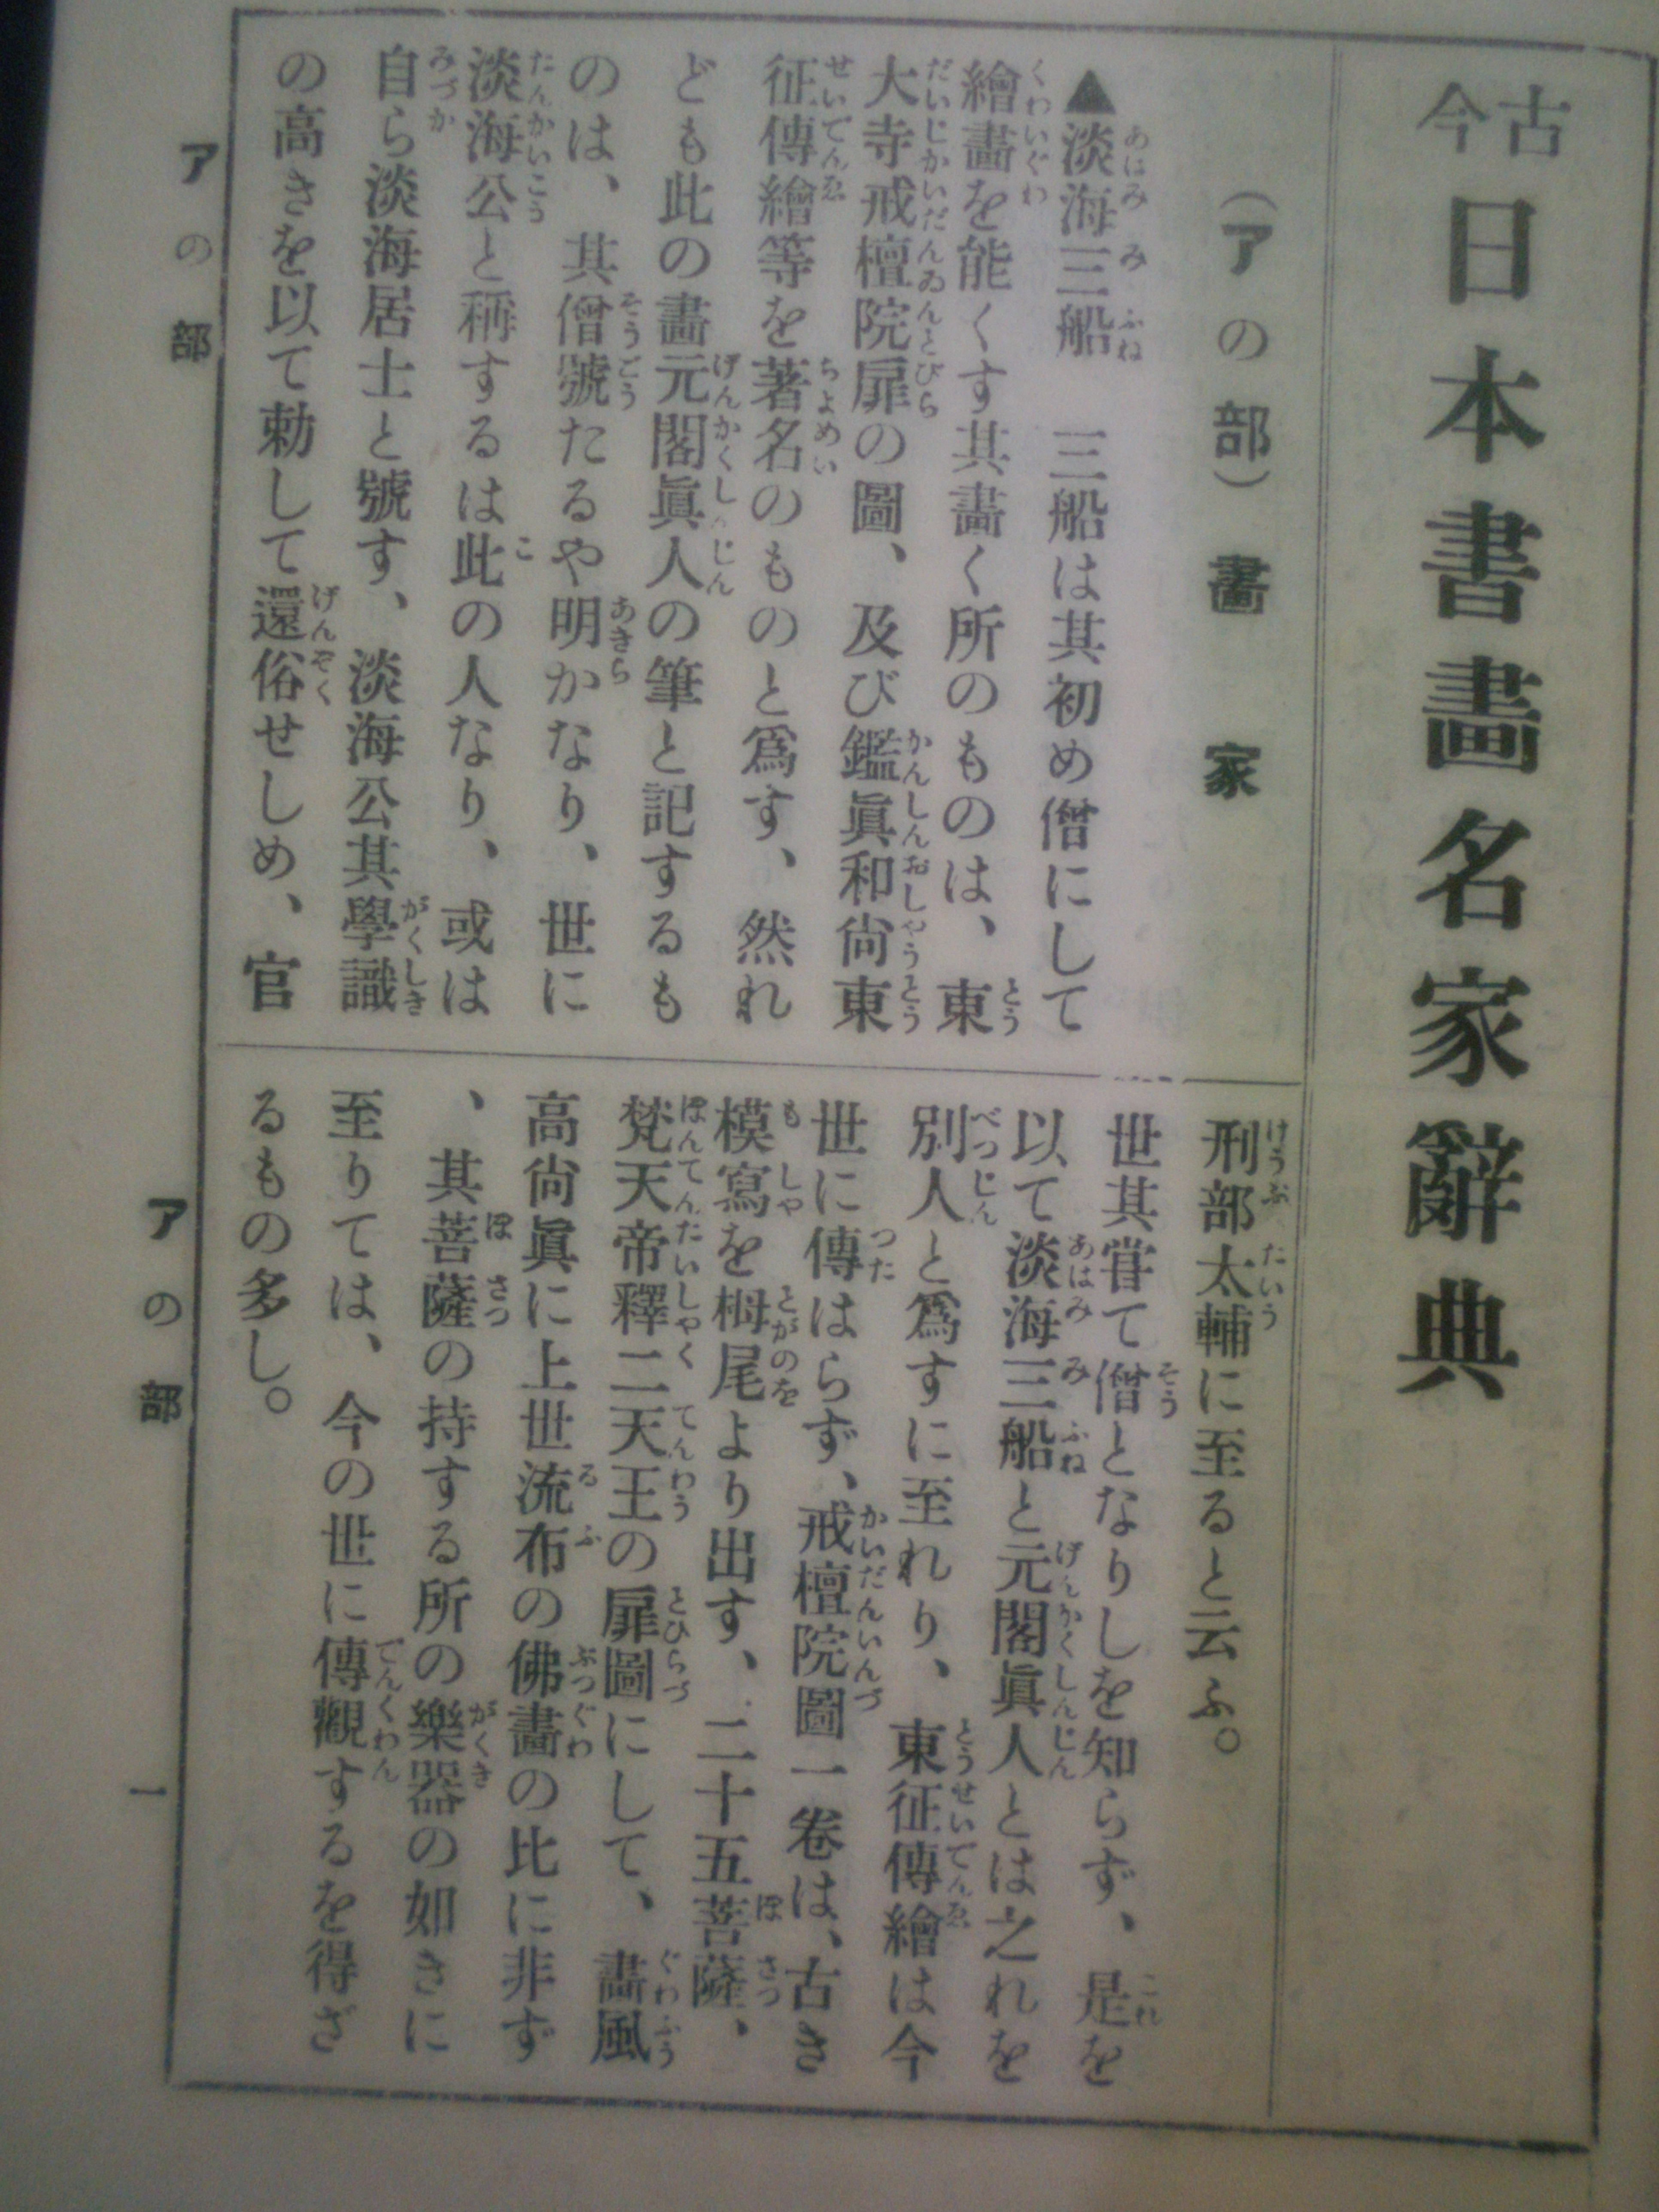 古今
日本書畫名家辭典
（アの部）畫家
▲淡海三船　三船は其初め僧にして
繪畫を能くす其畫く所のものは、東
大寺戒檀院扉の圖、及び鑑眞和尙東
征傳繪等を著名のものと爲す、然れ
ども此の畫元閣眞人の筆と記するも
のは、其僧號たるや明かなり、世に
淡海公と稱するは此の人なり、或は
自ら淡海居士と號す、淡海公其學識
の高きを以て勅して還俗せしめ、官
刑部太輔に至ると云ふ。
世其甞て僧となりしを知らず、是を
以て淡海三船と元閣眞人とは之れを
別人と爲すに至れり、東征傳繪は今
世に傳はらず、戒檀院圖一卷は、古き
模寫を栂尾より出す、二十五菩薩、
梵天帝釋二天王の扉圖にして、畫風
高尙眞に上世流布の佛畫の比に非ず
、其菩薩の持する所の樂器の如きに
至りては、今の世に傳觀するを得ざ
るもの多し。
アの部
アの部
一